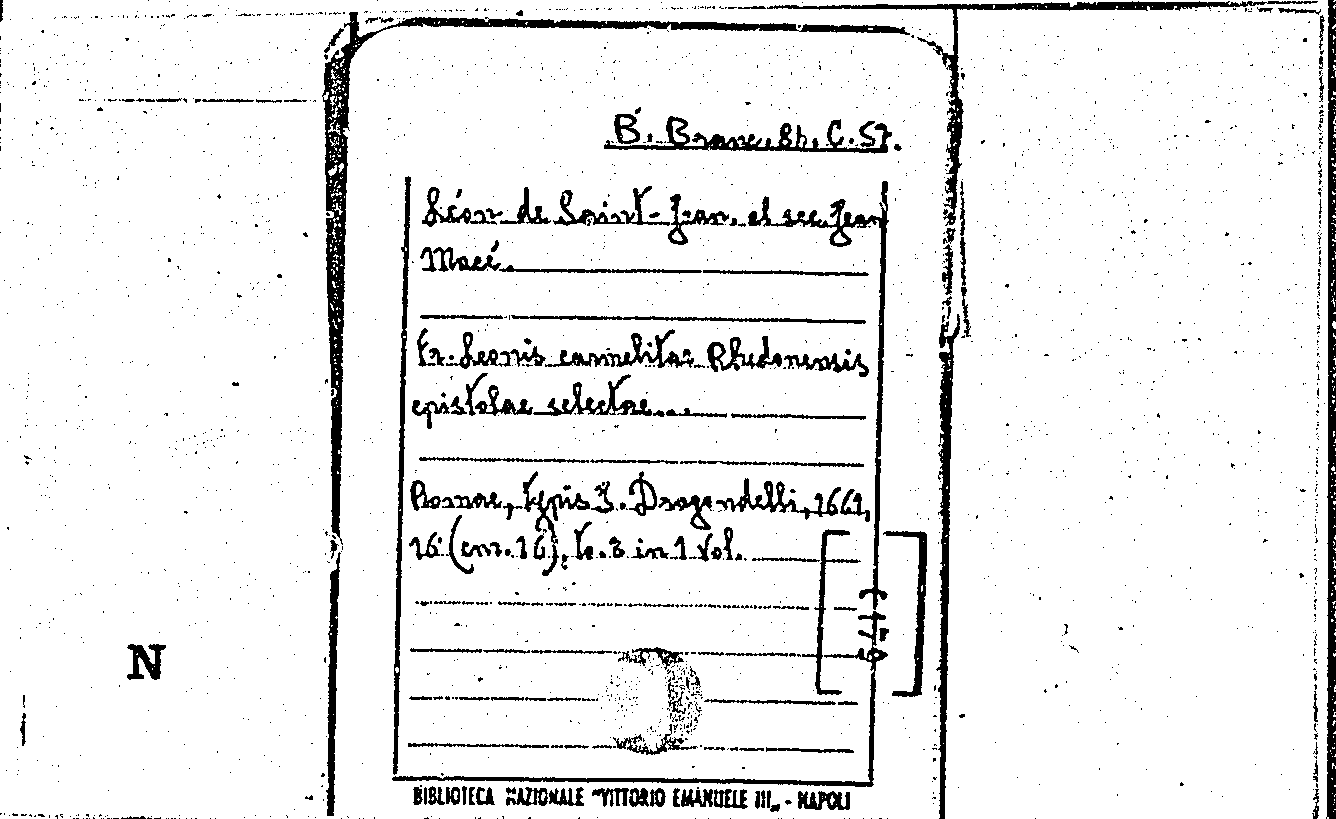 B. Branc. 8h. C. 57.
Léon de Saint-Jean, al sec. Jean
Macé.
Fr. Leonis carmelitae Rhedonensis
epistolae selectae...
Romae, typis J. Dragondelli, 1661,
16 (cm. 16), to. 3 in 1 vol.
N
BIBLIOTECA NAZIONALE "VITTORIO EMANUELE III„ - NAPOLI